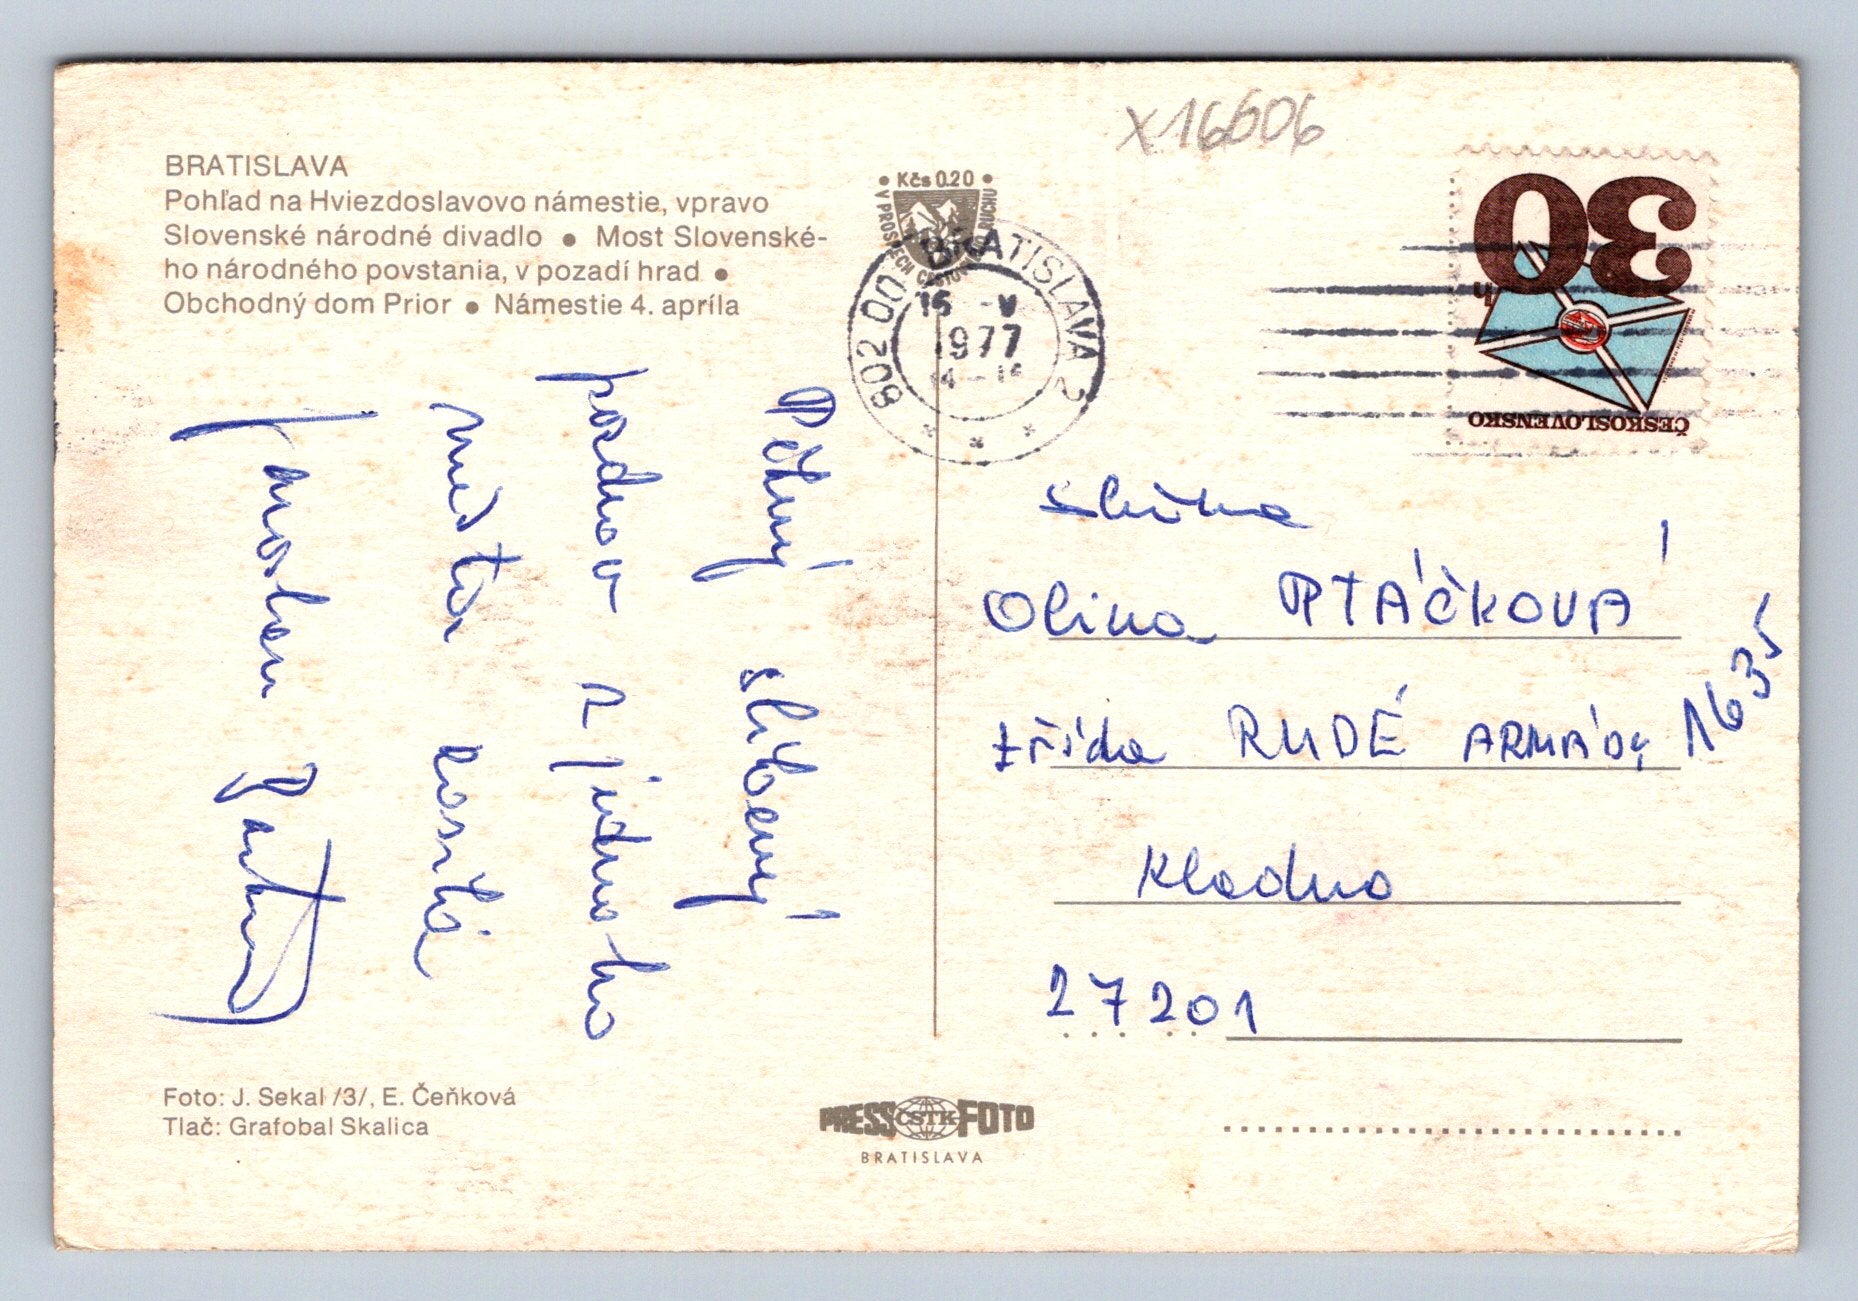 x16606
BRATISLAVA
Pohľad na Hviezdoslavovo námestie, vpravo
Slovenské národné divadlo ● Most Slovenské-
ho národného povstania, v pozadí hrad ●
Obchodný dom Prior ● Námestie 4. apríla
• Kčs 0.20 •
802 00 BRATISLAVA 2
V
1977
30
h
ČESKOSLOVENSKO
Pěkný slíbený
pozdrav z jednoho
města zasílá
Jaroslav
slečna
Olina PTÁČKOVÁ
třída RUDÉ ARMÁDY 1635
Kladno
27201
Foto: J. Sekal /3/, E. Čeňková
Tlač: Grafobal Skalica
PRESS ČSTK FOTO
BRATISLAVA